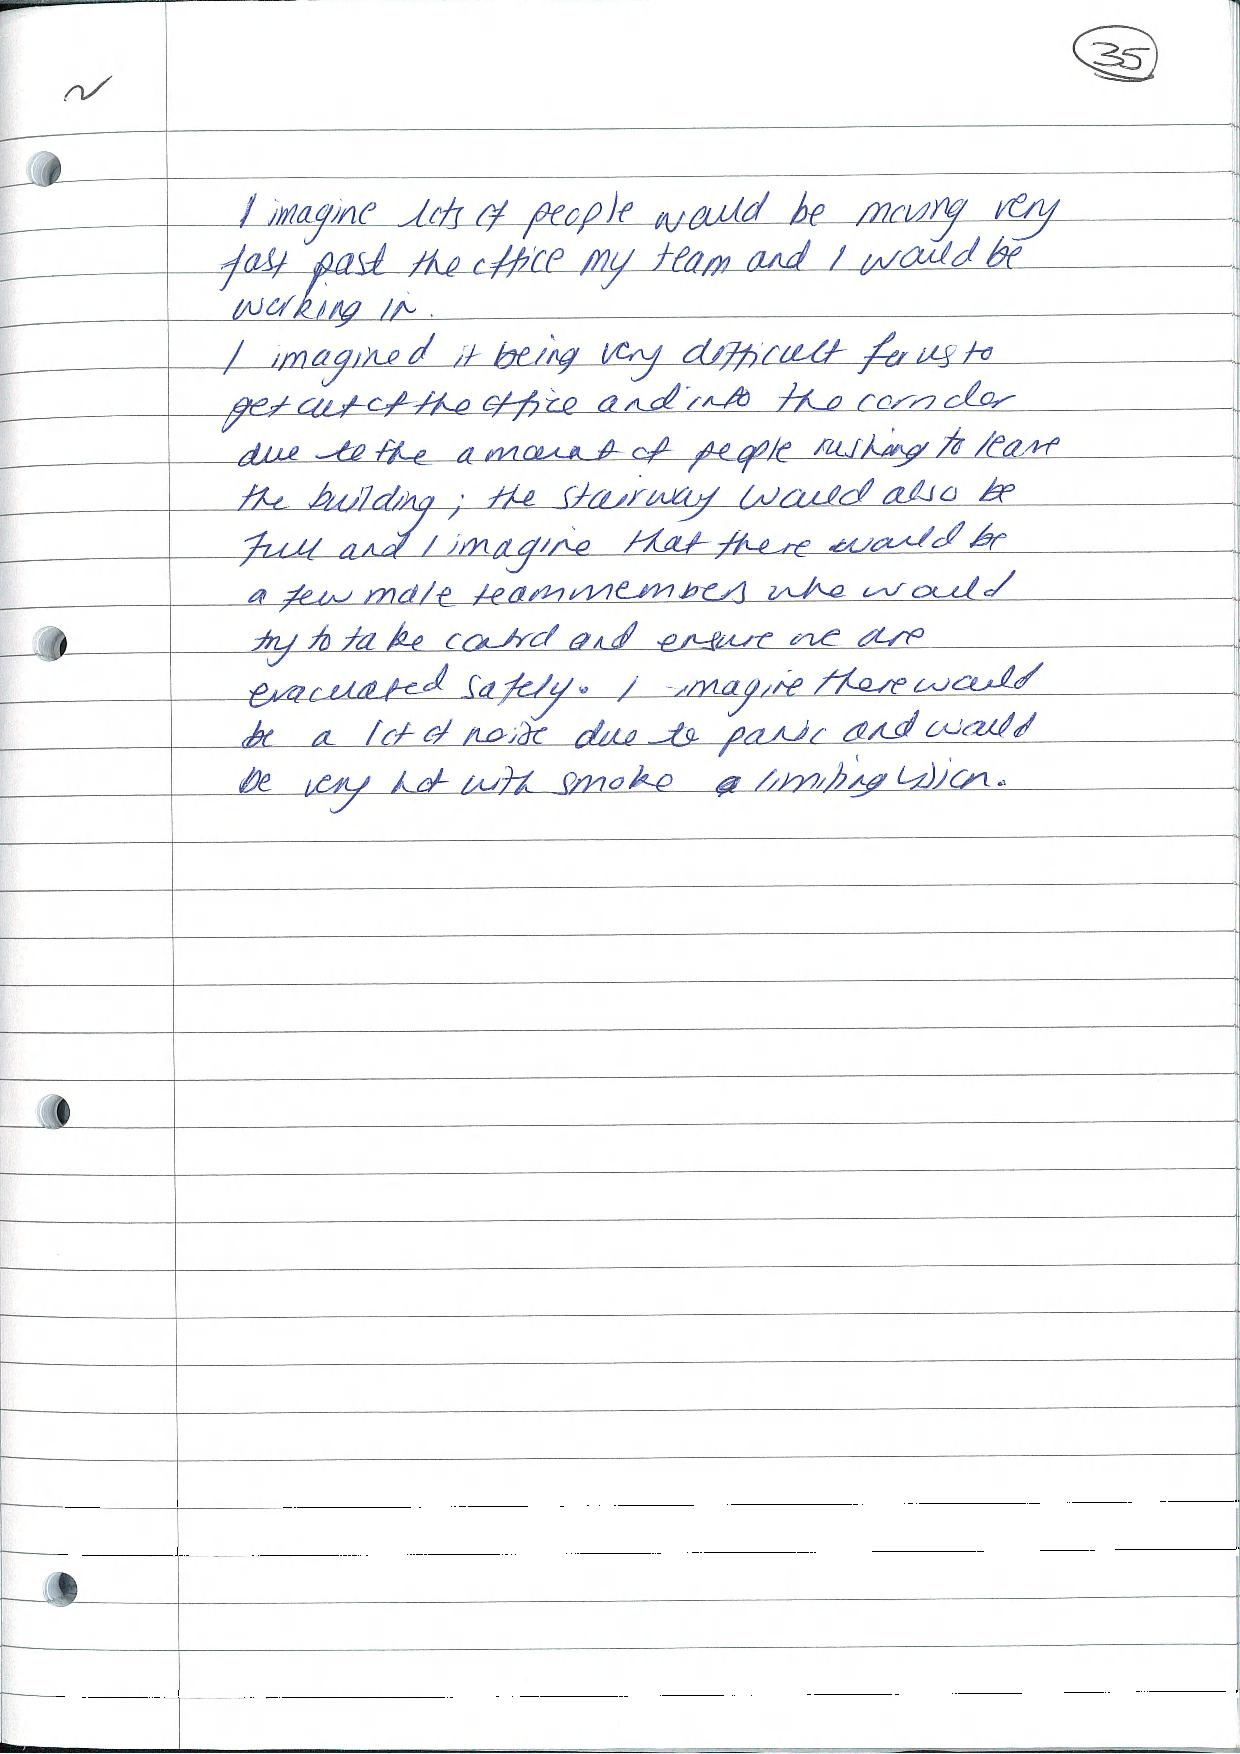 35
I imagine lots of people would be moving very
fast past the office my team and I would be
working in.
I imagined it being very difficult for us to
get out of the office and into the corridor
due to the amount of people rushing to leave
the building; the stairway would also be
full and I imagine that there would be
a few male teammembers who would
try to take control and ensure we are
evacuated safely. I imagine there would
be a lot of noise due to panic and would
be very hot with smoke limiting vision.